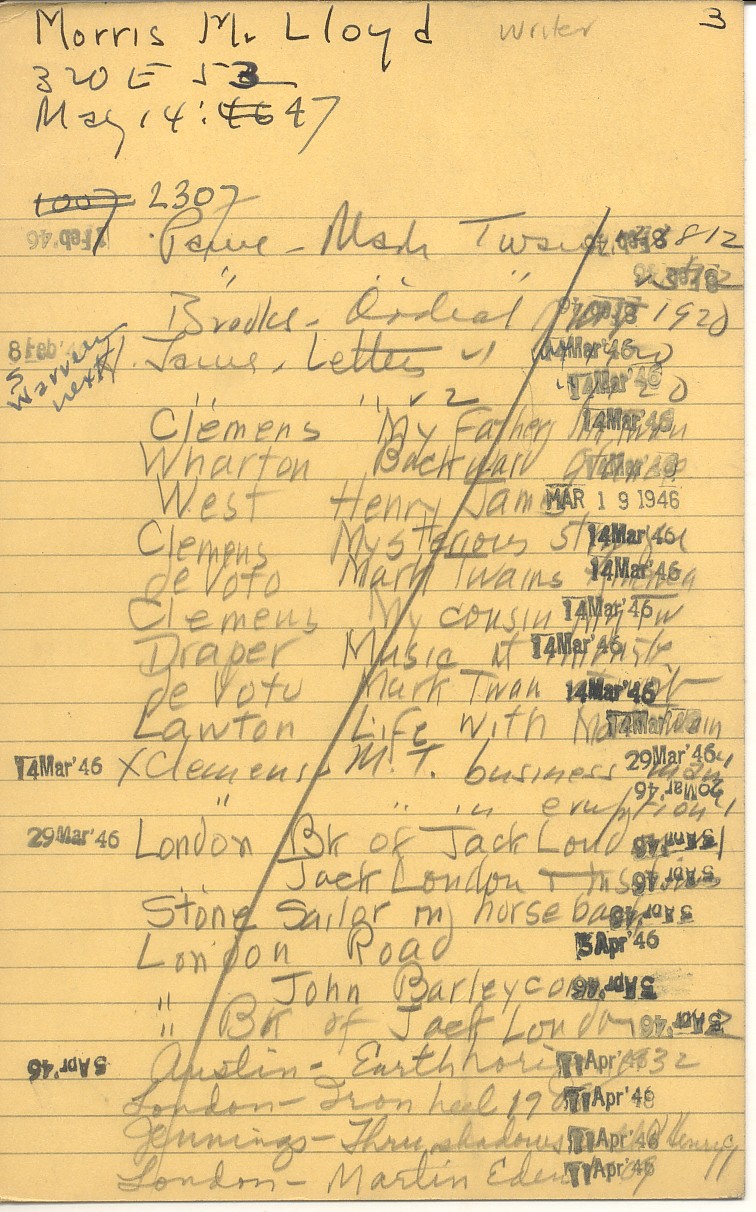 3
Morris M. Lloyd writer
320 E 53
May 14: 46 47
1007 2307
8 Feb '46 Paine - Mark Twain 8 Feb '46 1812
" " " 8 Feb
Brooks - Ordeal 8 Feb '46 1920
8 Feb '46 H. James, Letters v1 14 Mar '46
Warren next
" " v2 14 Mar '46
Clemens My Father 14 Mar '46
Wharton Backward 14 Mar '46
West Henry James MAR 19 1946
Clemens Mysterious 14 Mar '46
de Voto Mark Twains 14 Mar '46
Clemens My cousin 14 Mar '46
Draper Music at 14 Mar '46
de Voto Mark Twain 14 Mar '46
Lawton Life with Mark Twain 14 Mar
14 Mar '46 X Clemens M.T. business man 29 Mar '46
" " in eruption 20 Mar '46
29 Mar '46 London Bk of Jack London 1 5 Apr '46
Jack London 5 Apr '46
Stone Sailor on horseback 5 Apr '46
London Road 5 Apr '46
" John Barleycorn 5 Apr '46
" Bk of Jack London 2 5 Apr '46
5 Apr '46 Austin - Earth horizon 11 Apr '46 32
London - Iron heel 11 Apr '46
Jennings - Thru shadows 11 Apr '46 Henry
London - Martin Eden 11 Apr '46